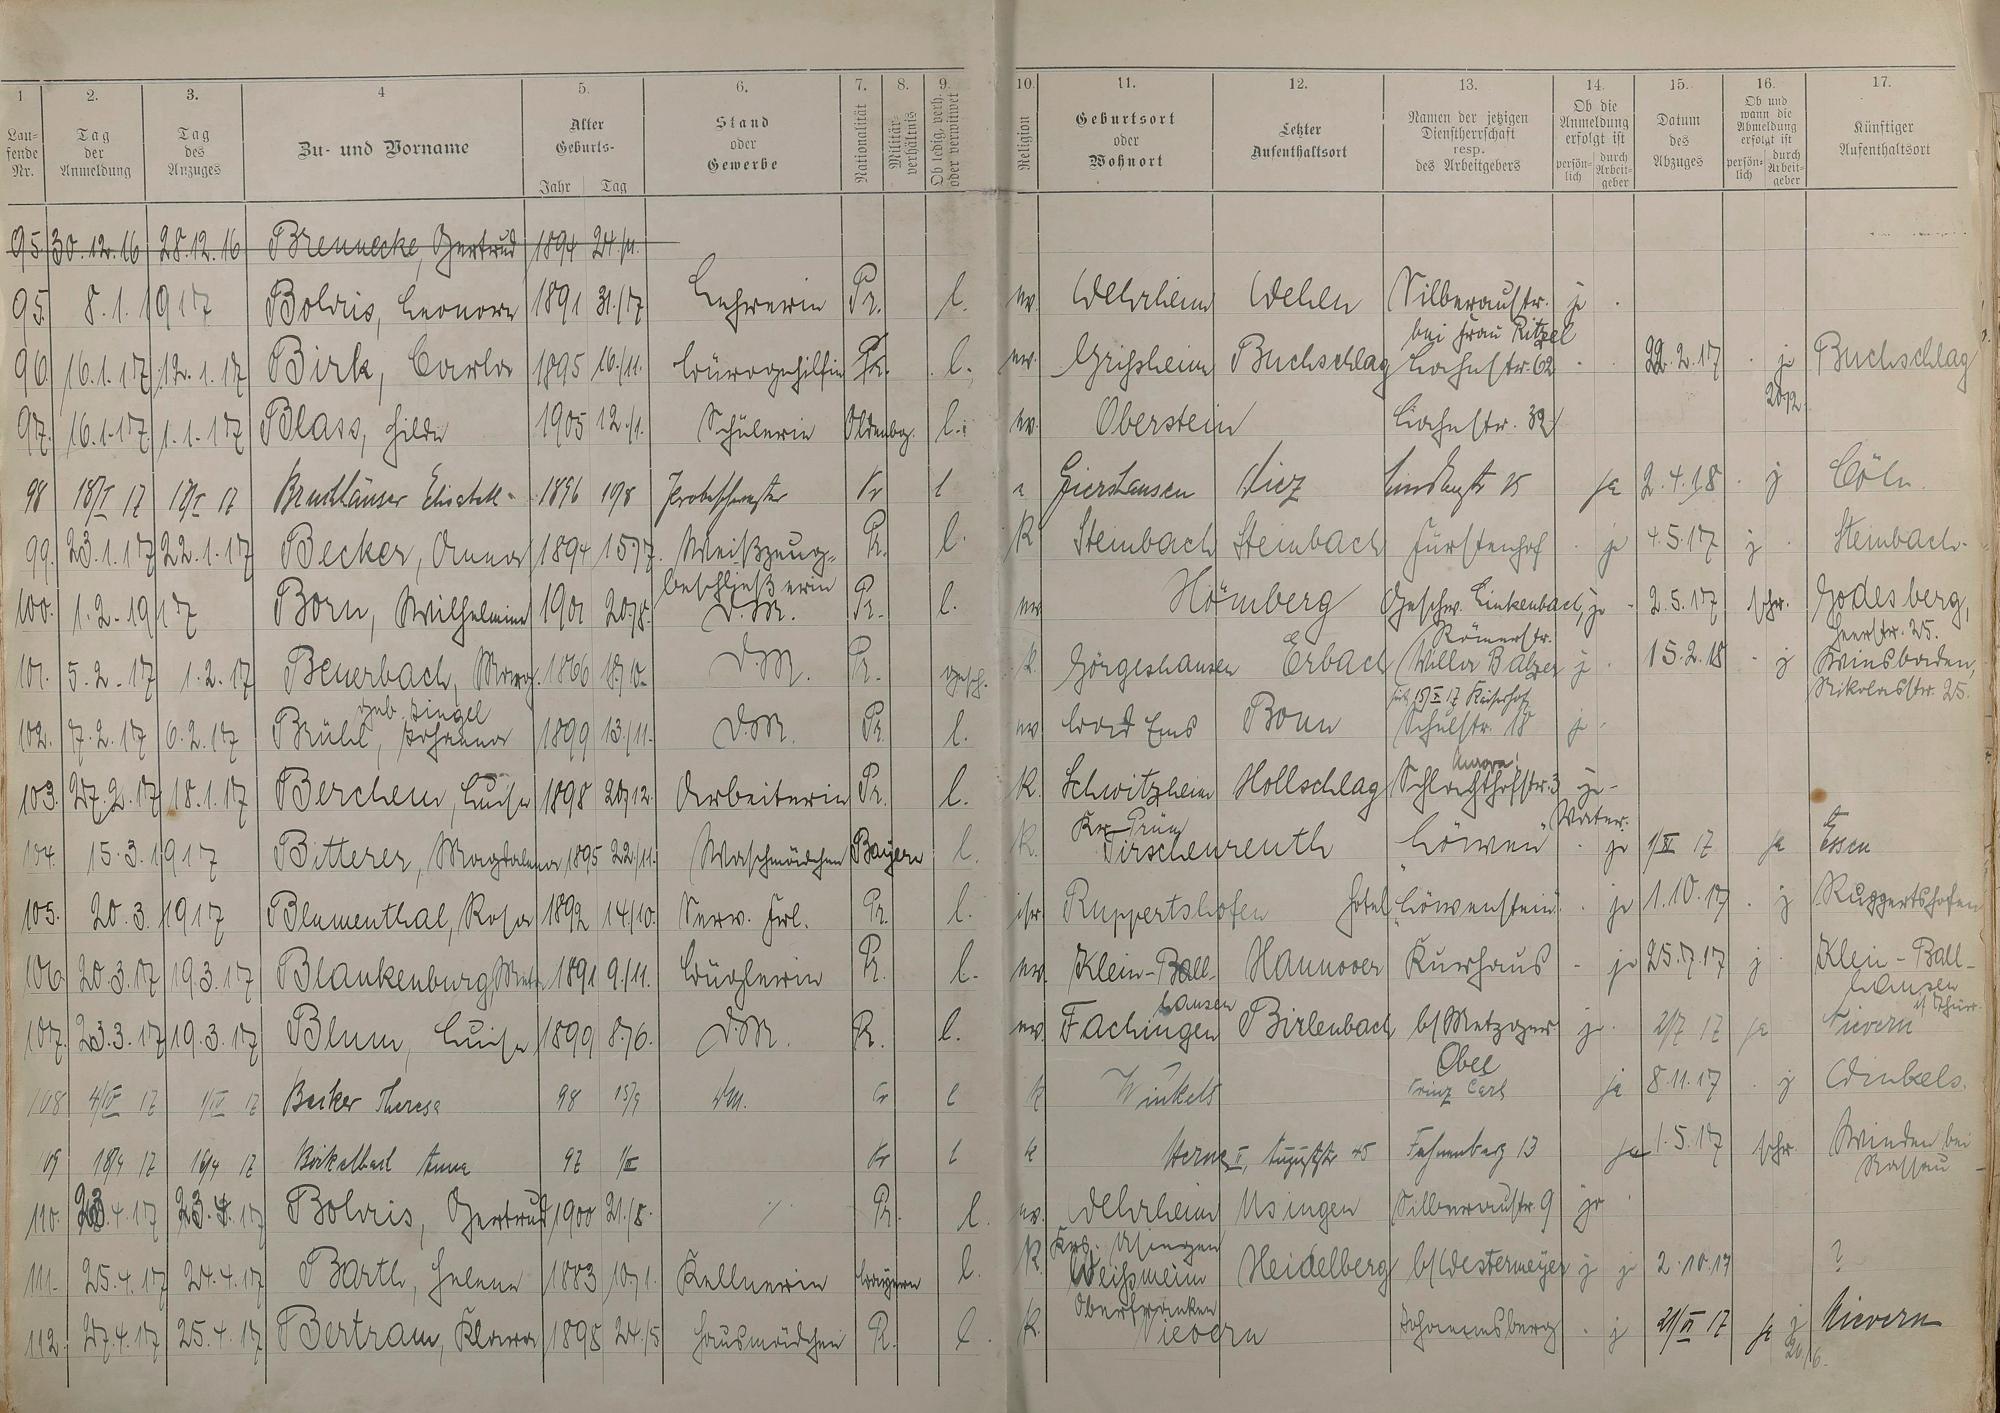 1 2. 3. 4 5. 6. 7. 8. 9. 10. 11. 12. 13. 14. 15. 16. 17.
Lau-fende Nr. Tag der Anmeldung Tag des Anzuges Zu- und Vorname Alter Geburts- Jahr Tag Stand oder Gewerbe Nationalität Militär-verhältnis Ob ledig, verh. oder verwitwet Religion Geburtsort oder Wohnort Letzter Aufenthaltsort Namen der jetzigen Dienstherrschaft resp. des Arbeitgebers Ob die Anmeldung erfolgt ist persön-lich durch Arbeit-geber Datum des Abzuges Ob und wann die Abmeldung erfolgt ist persön-lich durch Arbeit-geber Künftiger Aufenthaltsort
95. 30.12.16 28.12.16 Brennecke, Gertrud 1894 24./11.
95. 8.1.1917 Boldris, Leonore 1891 31./17 Lehrerin Pr. l. ev. Wehrheim Wehen Silberaustr. j
bei Frau Ritzel
96. 16.1.17 12.1.17 Birk, Carla 1895 16./11. Bürogehilfin Pr. l. ev. Grißheim Buchschlag Bahnstr. 62 22.2.17 j Buchschlag
20/2.
97. 16.1.17 1.1.17 Blass, Hilde 1905 12./1. Schülerin Oldenbg. l. ev. Oberstein Bahnstr. 32
98 18/I 17 17/I 17 Elisabeth 1896 10/8 Pr l Giershausen Diez ja 2.4.18 j Cöln.
99. 23.1.17 22.1.17 Becker, Anna 1894 15/7. Weißzeug- Pr. l. K. Steinbach Steinbach Fürstenhof j 4.5.17 j Steinbach.
beschließerin
100. 1.2.1917 Born, Wilhelmine 1901 20/8. D.M. Pr. l. ev. Hömberg Geschw. Linkenbach, j 2.5.17 schr. Godesberg,
Römerstr. 25.
101. 5.2.17 1.2.17 Beuerbach, Marg. 1866 18/10. D.M. Pr. gesch. K. Görgeshausen Erbach Villa Balzer j 15.2.18 j Wiesbaden,
geb. Singel 17 Kaiserhof Nikolasstr. 25.
102. 7.2.17 6.2.17 Brühl, Johanna 1899 13./11. D.M. Pr. l. ev. Bad Ems Bonn Schulstr. 18 j
103. 27.2.17 18.1.17 Berchem, Luise 1898 20/12. Arbeiterin Pr. l. K. Schwitzheim Hollschlag Schlachthofstr. 3 j
Kr. Prüm Vater.
104. 15.3.1917 Bitterer, Magdalena 1895 22./11. Waschmädchen Bayern l. K. Tirschenreuth "Löwen" j 1/XI 17 ja Essen
105. 20.3.1917 Blumenthal, Rosa 1892 14./10. Serv. Frl. Pr. l. isr. Ruppertshofen Hotel "Löwenstein" j 1.10.17 j Ruppertshofen
106. 20.3.17 19.3.17 Blankenburg, Meta 1891 9./11. Büglerin Pr. l. ev. Klein-Ball- Hannover Kurhaus j 25.7.17 j Klein-Ball-
hausen hausen
107. 23.3.17 19.3.17 Blum, Luise 1899 8./6. D.M. Pr. l. ev. Fachingen Birlenbach b/Metzger j 2/7 17 ja Nievern
Obel
108 4/IV 17 1/IV 17 Becker Theresa 98 15/9 DM. Pr l K Winkels Prinz Carl ja 8.11.17 j Winkels.
09 18/4 17 16/4 17 Anna 97 1/III Pr l K Herne II, Auguststr 45 Fahnenberg 13 ja 1.5.17 schr. Winden bei
Nassau
110. 23.4.17 23.4.17 Boldris, Gertrud 1900 21./8. Pr. l. ev. Wehrheim Usingen Silberaustr. 9 j
Krs. Usingen
111. 25.4.17 24.4.17 Barth, Helene 1883 10/1. Kellnerin Bayern l. K. Weißmein Heidelberg b/Westermeyer j j 2.10.17 ?
Oberfranken
112. 27.4.17 25.4.17 Bertram, Klara 1895 24./5 Hausmädchen Pr. l. K. Nievern Johannisberg j 21/VI 17 ja j Nievern
20/6.